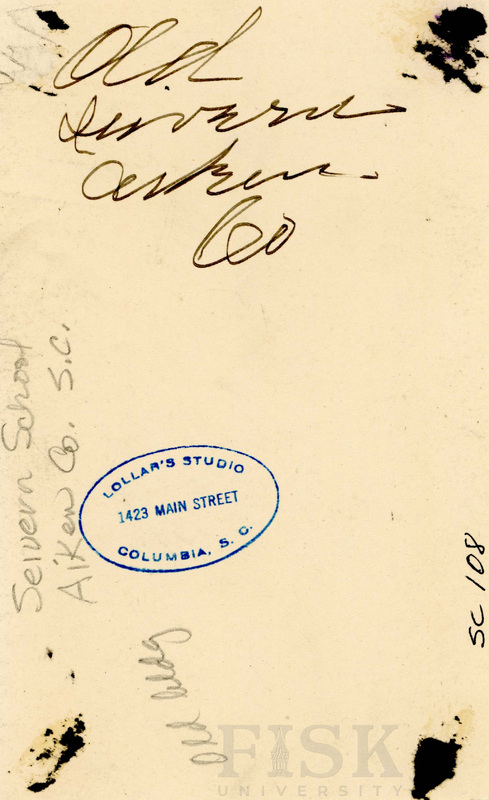 Old
Seivern
Aiken
Co
Seivern School
Aiken Co. S.C.
LOLLAR'S STUDIO
1423 MAIN STREET
COLUMBIA, S. C.
SC 108
Old bldg
FISK
UNIVERSITY